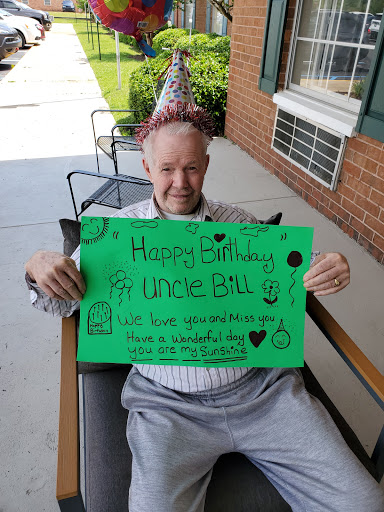 " Happy Birthday "
Uncle Bill
We love you and Miss you
Have a wonderful day
you are my Sunshine
Happy
Birthday